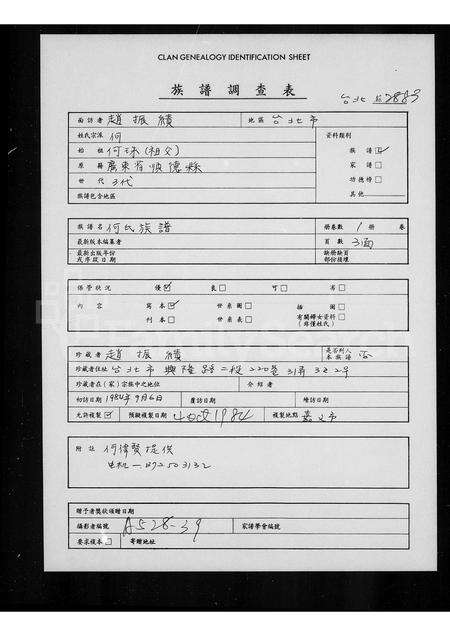 CLAN GENEALOGY IDENTIFICATION SHEET
族譜調查表
台北 2883
面訪者 趙振績 地區 台北市
姓氏宗派 何 資料類別
始祖 何球(祖父) 族譜
原籍 廣東省順德縣 家譜
世代 3代 功德榜
族譜包含地區 其他
族譜名 何氏族譜 册卷數 1册 卷
最新版本編纂者 頁數 3面
最新出版年份或序跋日期 缺册缺頁部份損壞
保管狀況 優 良 可 劣
內容 寫本 世系圖 插圖
刊本 世系表 有關婦女資料(非僅姓氏)
珍藏者 趙振績 是否列入本族譜 否
珍藏者住址 台北市興隆路二段220巷31弄32號
珍藏者在(家)宗族中之地位 介紹者
初訪日期 1984年9月6日 覆訪日期 續訪日期
允許複製 預擬複製日期 1984 複製地點 嘉义市
附註 何偉賢提供
电机一892503132
贈予者獎狀頒贈日期
攝影者編號 A528-39 家譜學會編號
要求複本 寄贈地址